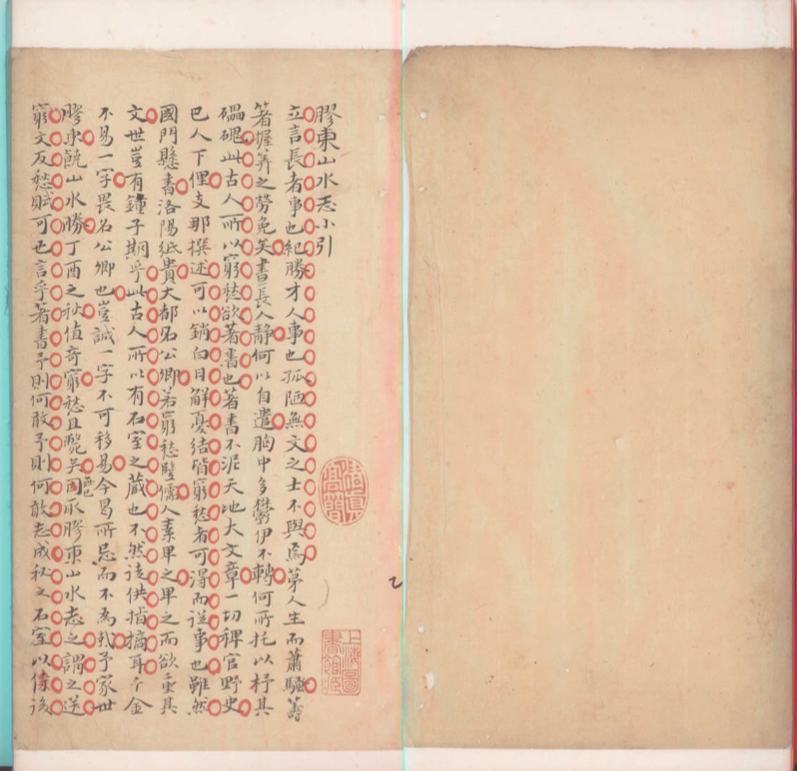 膠東山水志小引
立言長者事也紀勝才人事也孤陋無文之士不與焉第人生而蕭騷蓍
著握筭之勞免矣書長人靜何以自遣胸中多鬱伊不轉何所托以抒其
磊磈此古人所以窮愁欲著書也著書不泥天地大文章一切稗官野史
巴人下俚支那撰述可以銷白日解憂結皆窮愁者可得而從事也雖然
國門懸書洛陽紙貴大都名公卿若窮愁豎儒人素卑之卑之而欲重其
文世豈有鍾子期乎此古人所以有石室之藏也不然徒供指摘耳千金
不易一字畏名公卿也豈誠一字不可移易今昌所忌而不為哉予家世
膠東饒山水勝丁酉之秋值奇窮愁且斃矣因取膠東山水志之謂之送
窮文反愁賦可也言乎著書予則何敢予則何敢志成私之石室以俟後
應也
清真高簡
上海圖書館藏